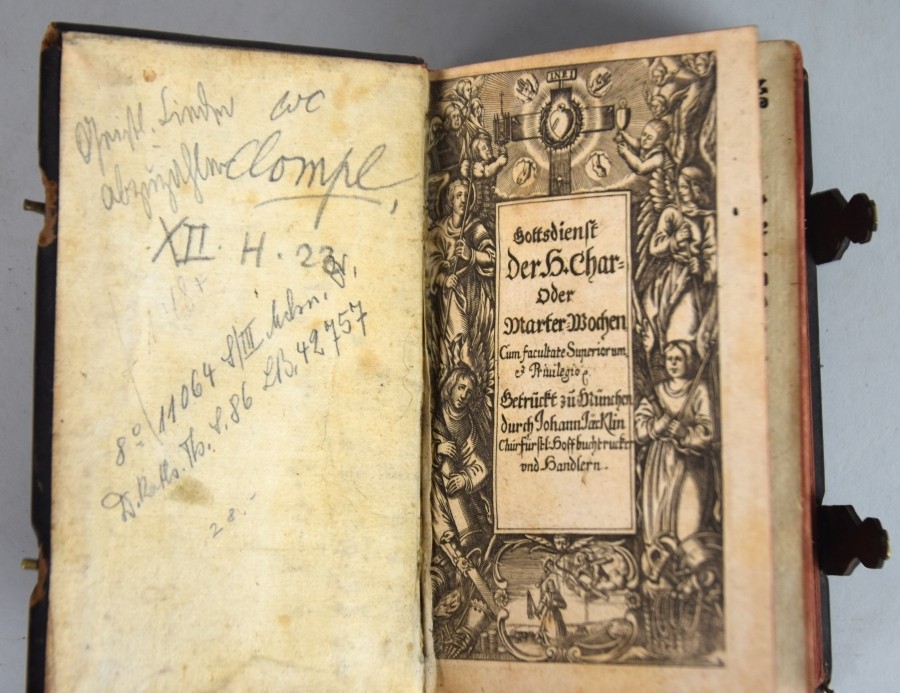 Geistl. Lieder
abzuzählen
Compl.
XII. H. 23
8° 11064
S. 86 LB. 42757
28.-
INRI
Gottsdienst
Der H. Char=
Oder
Marter=Wochen
Cum facultate Superiorum,
et Privilegio
Getruckt zů München
durch Johann Jäcklin
Churfürstl: Hoffbuchtrucker
vnd Handlern.